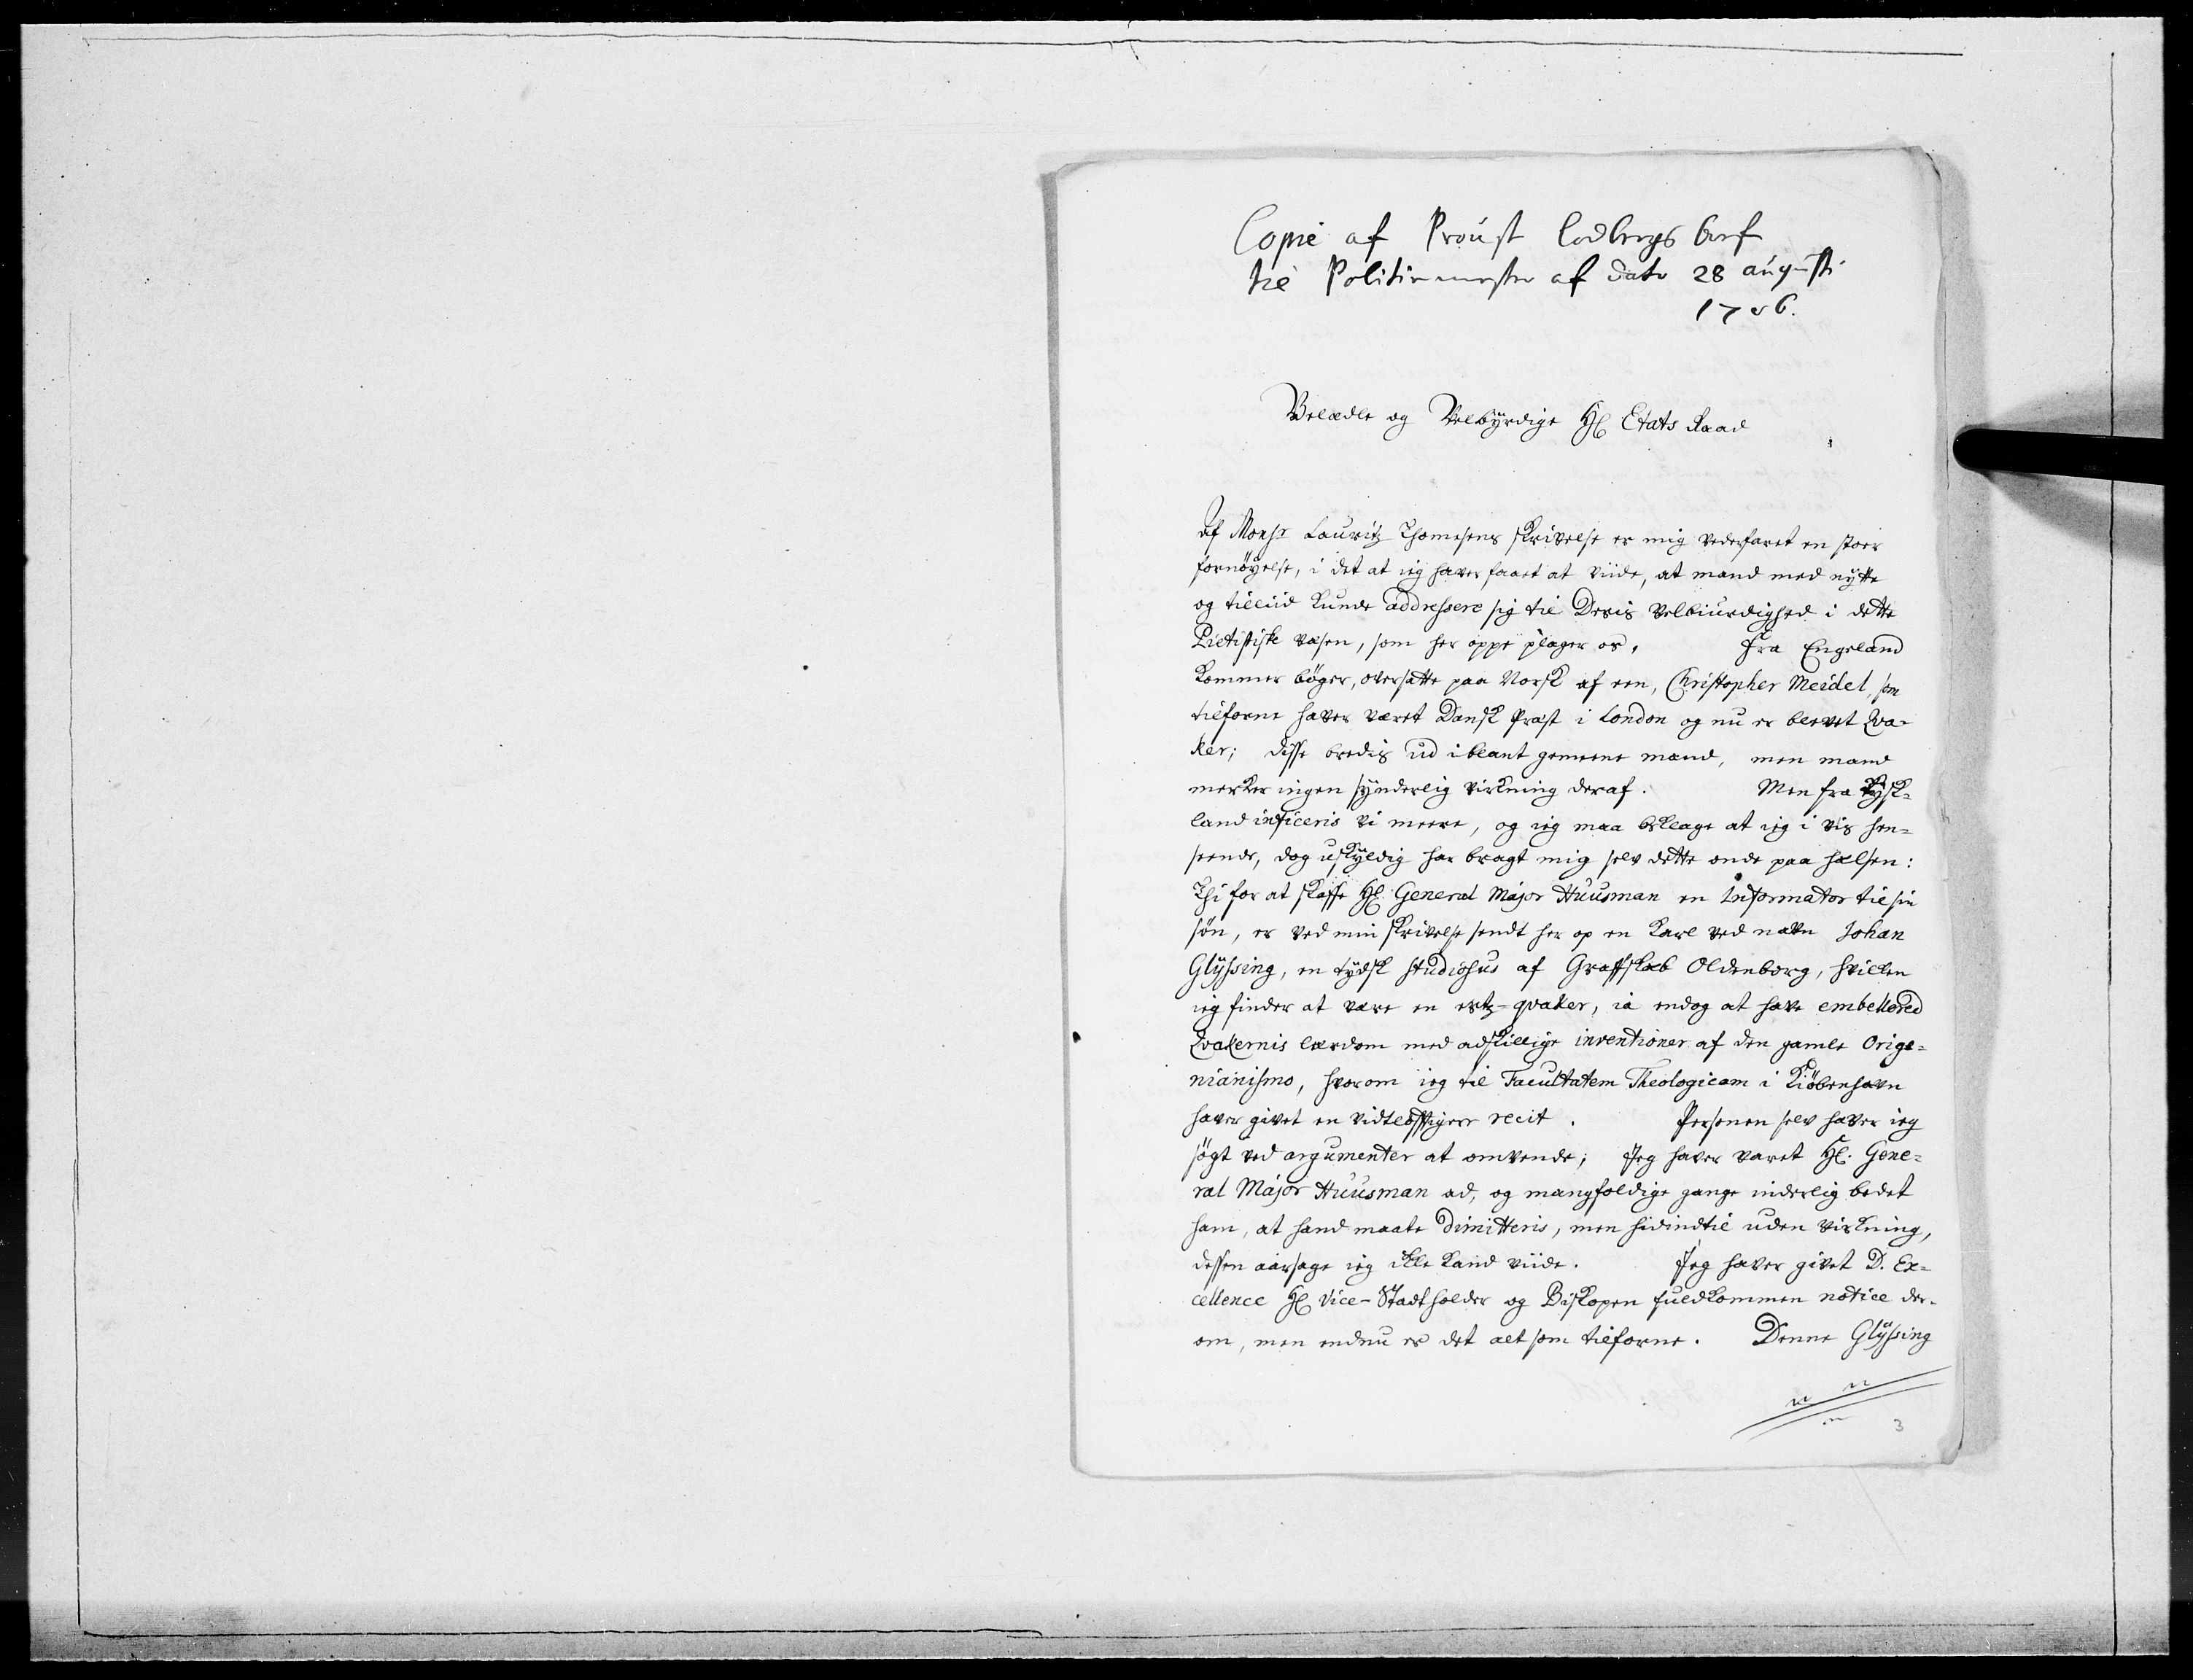 Copie af Proust Lodbergs bref
til Politiemester af dato 28 augusti
1706.
Velædle og Velbÿrdige Hl Etats Raad
Af Monsr Lauritz Thomesens skrivelse er mig vederfaret en stoer
fornöyelse, i det at ieg haver faaet at viide, at mand med nÿtte
og tilliid kunde addressere sig til Deris Velbiurdighed i dette
Pietistiske væsen, som her oppe plager os. Fra Engeland
kommer böger, oversatte paa Norsk af een, Christopher Meidel, som
tilforne haver været Dansk Præst i London og nu er blevet Qva-
ker; disse bredis ud iblant gemeene mand, men mand
merker ingen sÿnderlig virkning deraf. Men fra Tÿsk-
land inficeris vi meere, og ieg maa beklage at ieg i vis hen-
seende, dog uskÿldig har bragt mig selv dette onde paa halsen:
Thi for at skaffe Hl. General Major Huusman en Informator til sin
sön, er ved min skrivelse sendt her op en Karl ved navn Johan
Glÿsing, en tÿdsk studiosus af Graffskab Oldenborg, hvilken
ieg finder at være en ertz-qvaker, ia endog at have embellered
Qvakernis lærdom med adskillige inventioner af den gamle Orige-
nianismo, hvorom ieg til Facultatem Theologicam i Kiöbenhavn
haver givet en vidtlöfftigere recit. Personen selv haver ieg
sögt ved argumenter at omvende; Jeg haver varet Hl. Gene-
ral Major Huusman ad, og mangfoldige gange inderlig bedet
ham, at hand maate dimitteris, men hidindtil uden virkning,
dessen aarsage ieg ikke kand viide. Jeg haver givet D. Ex-
cellence Hl Vice-Stadtholder og Biskopen fuldkommen notice der-
om, men endnu er det alt som tilforne. Denne Glÿsing
3